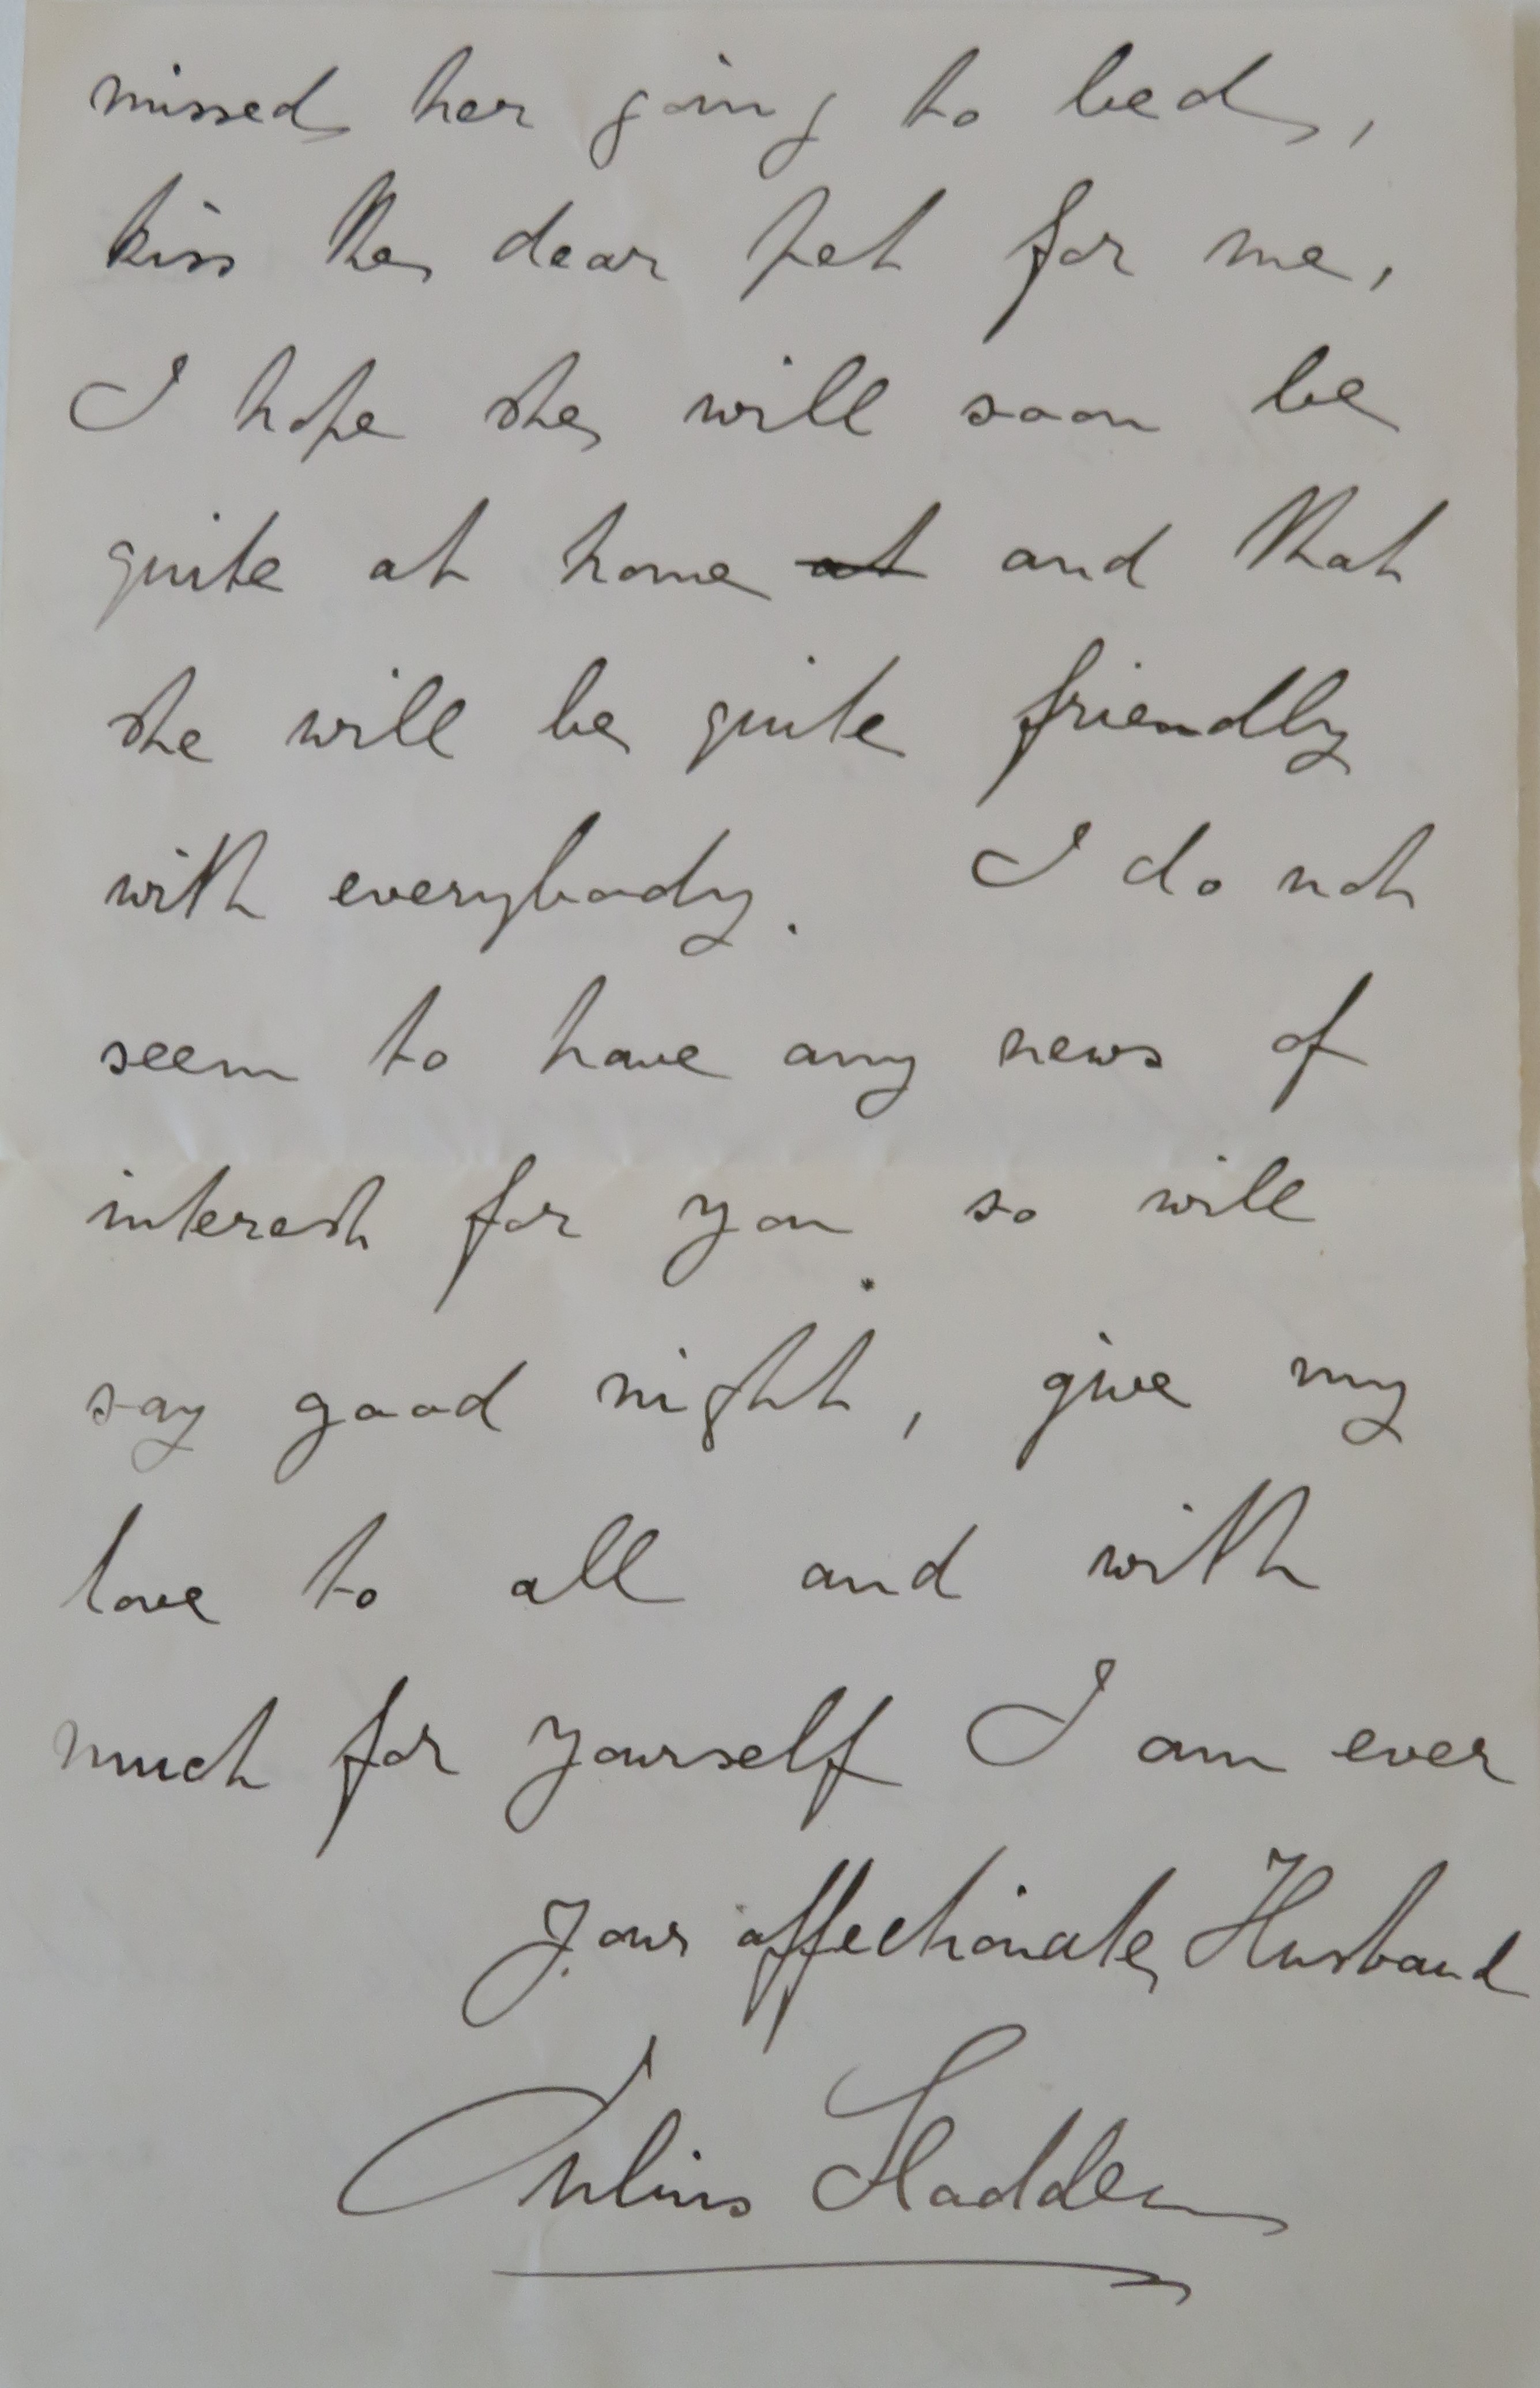 missed her going to bed,
kiss the dear pet for me,
I hope she will soon be
quite at home at and that
she will be quite friendly
with everybody. I do not
seem to have any news of
interest for you. so will
say good night, give my
love to all and with
much for yourself I am ever
Your affectionate Husband
Julius Hadden